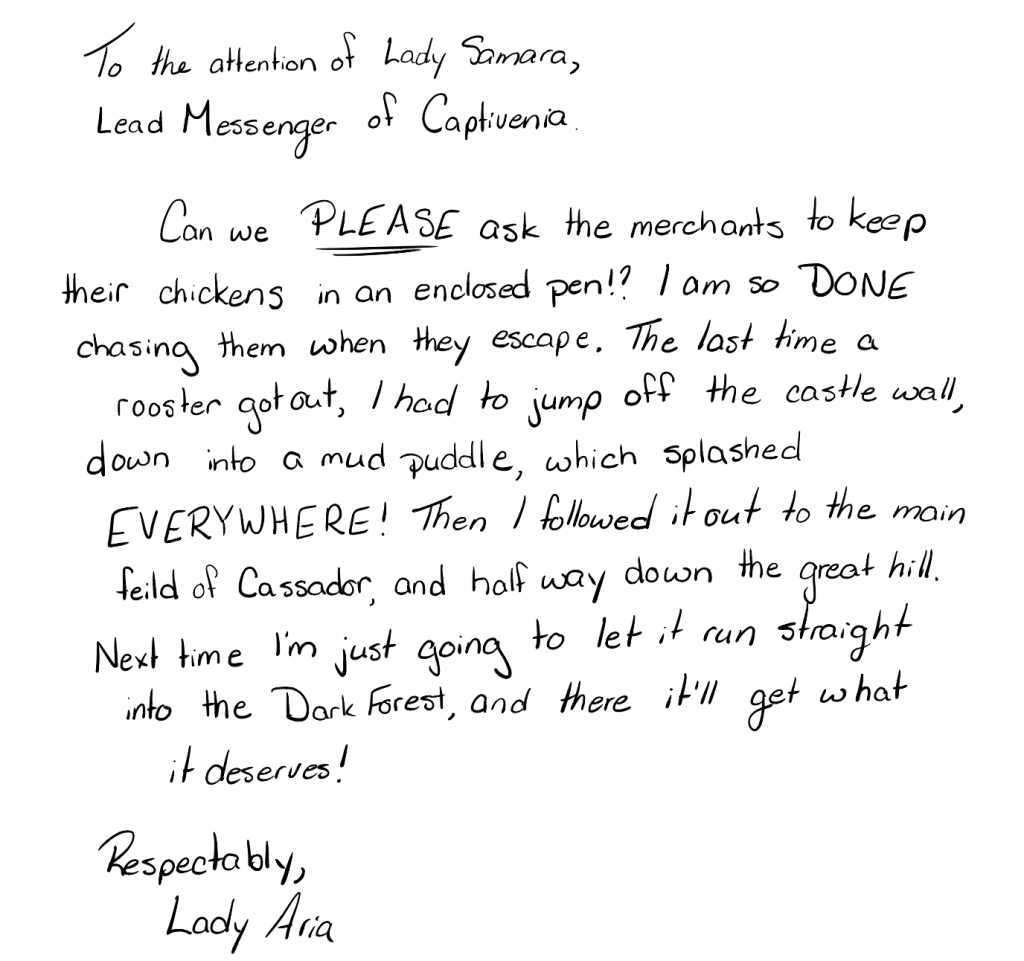 To the attention of Lady Samara,
Lead Messenger of Captivenia.
Can we PLEASE ask the merchants to keep
their chickens in an enclosed pen!? I am so DONE
chasing them when they escape. The last time a
rooster got out, I had to jump off the castle wall,
down into a mud puddle, which splashed
EVERYWHERE! Then I followed it out to the main
feild of Cassador, and half way down the great hill.
Next time I'm just going to let it run straight
into the Dark Forest, and there it'll get what
it deserves!
Respectably,
Lady Aria